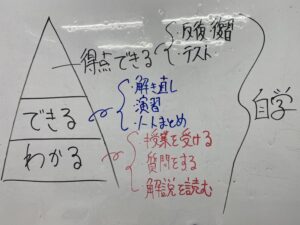 得点できる
・反復復習
・テスト
できる
・解き直し
・演習
・ノートまとめ
わかる
・授業を受ける
・質問をする
・解説を読む
自学